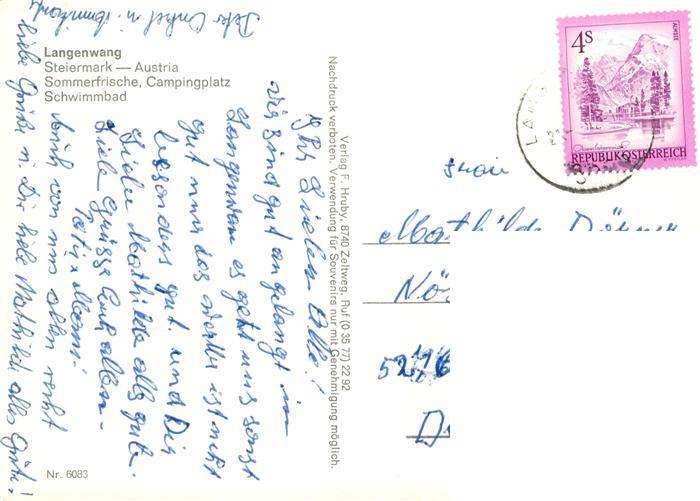 Langenwang
Steiermark — Austria
Sommerfrische, Campingplatz
Schwimmbad
Ihr Lieben Alle!
wir sind gut angelangt in
Langenwang es geht uns sonst
gut nur das Wetter ist nicht
besonders gut und Dir
Liebe Mathilde alles gute.
Viele Grüsse Euch allen
Auch von uns allen recht
liebe Grüße u. Dir liebe Mathilde alles Gute!
Onkel u.
Nr. 6083
Verlag F. Hruby, 8740 Zeltweg, Ruf (0 35 77) 22 92
Nachdruck verboten. Verwendung für Souvenirs nur mit Genehmigung möglich.
4S
ALMSEE
REPUBLIK ÖSTERREICH
Frau
Mathilde